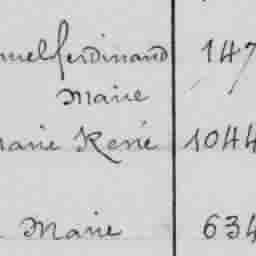 nuel ferdinand 147
Marie
Marie René 1044
Marie 634